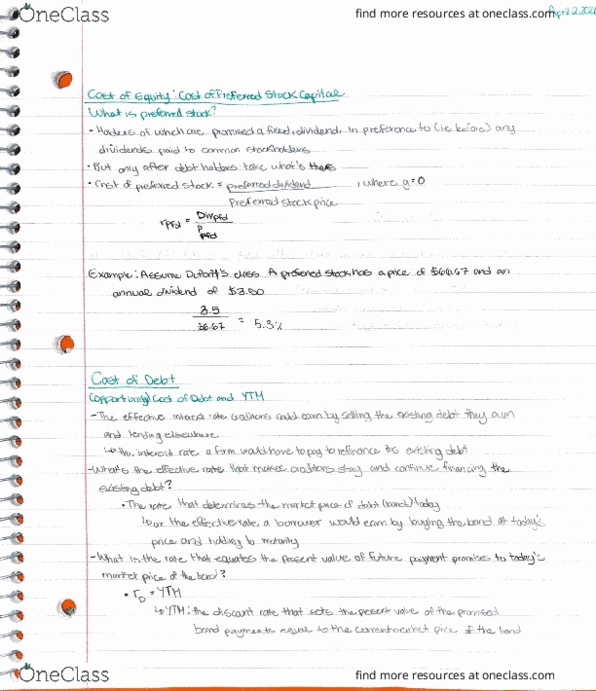 OneClass
find more resources at oneclass.com
April 2, 202
Cost of Equity: Cost of Preferred Stock Capital
What is preferred stock?
• Holders of which are promised a fixed, dividend, in preference to (ie. before) any
dividends paid to common stockholders
• But only after debt holders take what's theirs
• Cost of preferred stock = preferred dividend , where g=0
Preferred stock price
rpfd = Divpfd
Ppfd
Example: Assume DuPont's class A preferred stock has a price of $66.67 and an
annual dividend of $3.50
3.5
66.67 = 5.3%
Cost of Debt
(opportunity) Cost of Debt and YTM
- The effective interest rate creditors could earn by selling the existing debt they own
and lending elsewhere
↳ the interest rate a firm would have to pay to refinance its existing debt
- What's the effective rate that makes creditors stay and continue financing the
existing debt?
• The rate that determines the market price of debt (bond) today
↳ or the effective rate a borrower would earn by buying the bond at today's
price and holding to maturity
- What is the rate that equates the present value of future payment promises to today's
market price of the bond?
• rD = YTM
↳ YTM: the discount rate that sets the present value of the promised
bond payments equal to the current market price of the bond
OneClass
find more resources at oneclass.com